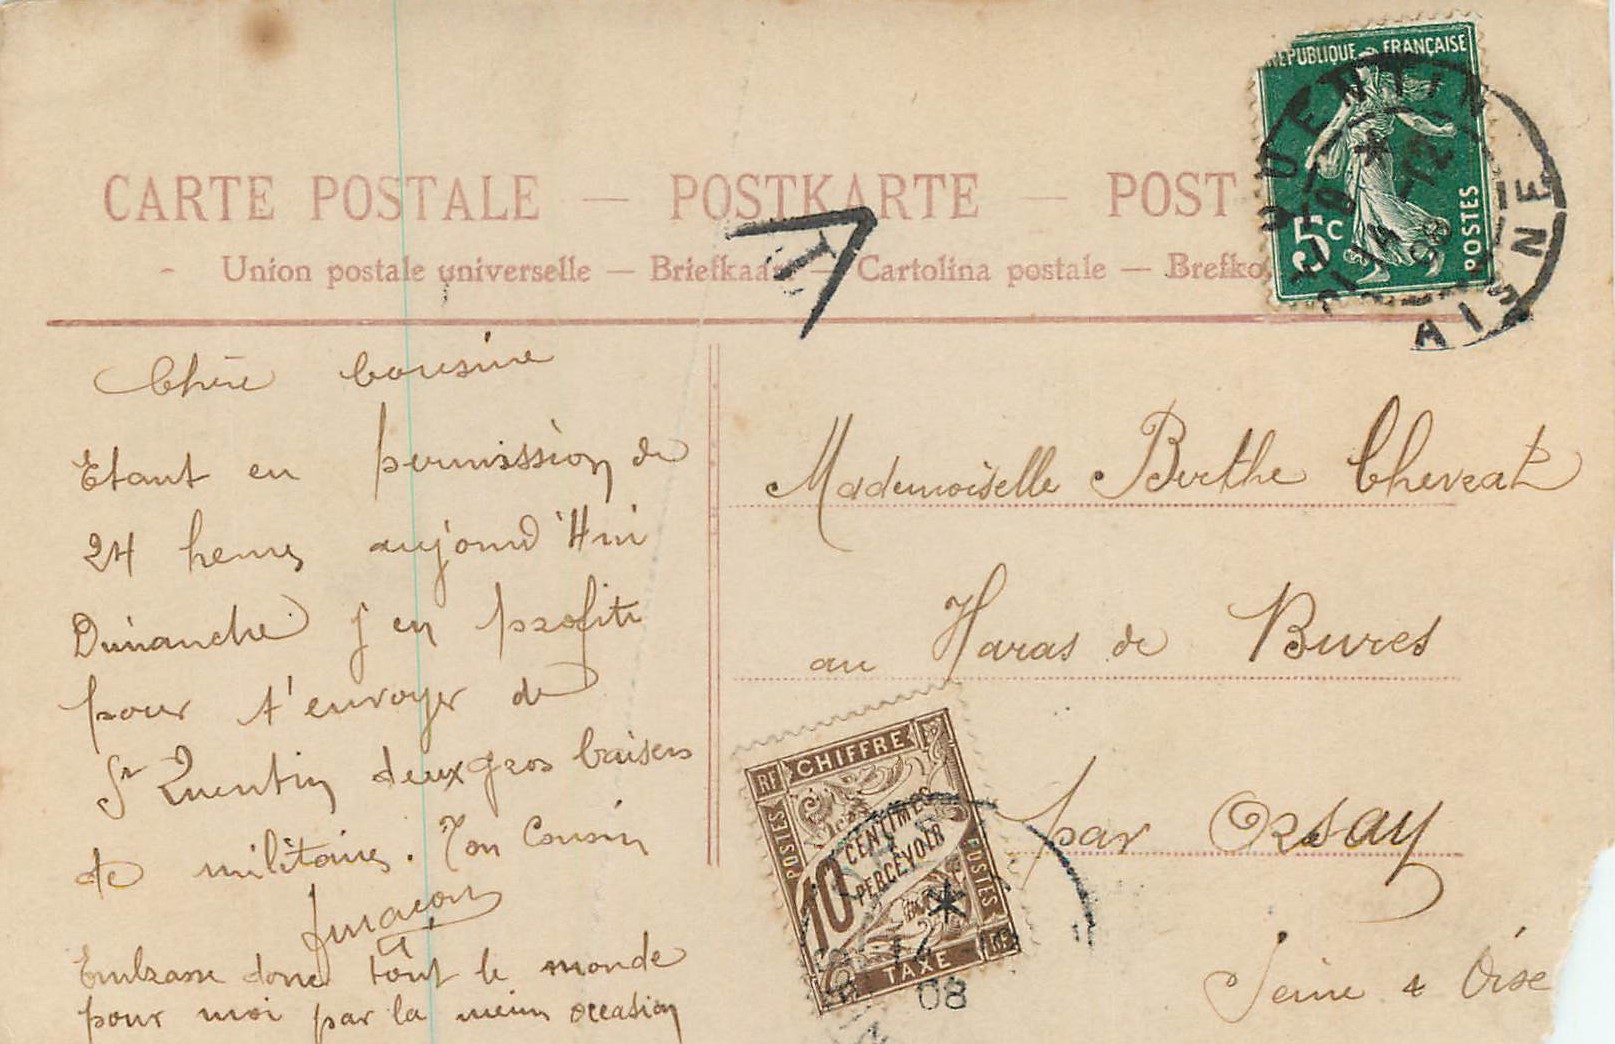 CARTE POSTALE — POSTKARTE — POST
Union postale universelle — Briefkaa — Cartolina postale — Brefko
RÉPUBLIQUE FRANÇAISE
5c
POSTES
QUENTIN
AISNE
08
T
Chère Cousine
Etant en permission de
24 heures aujourd'Hui
Dimanche j en profite
pour t'envoyer de
St Quentin deux gros baisers
de militaire. Ton Cousin
Embrasse donc tout le monde
pour moi par la même occasion
Mademoiselle Berthe
au Haras de Bures
par Orsay
Seine & Oise
RF CHIFFRE
POSTES
10 CENTIMES
À PERCEVOIR
POSTES
TAXE RF
08